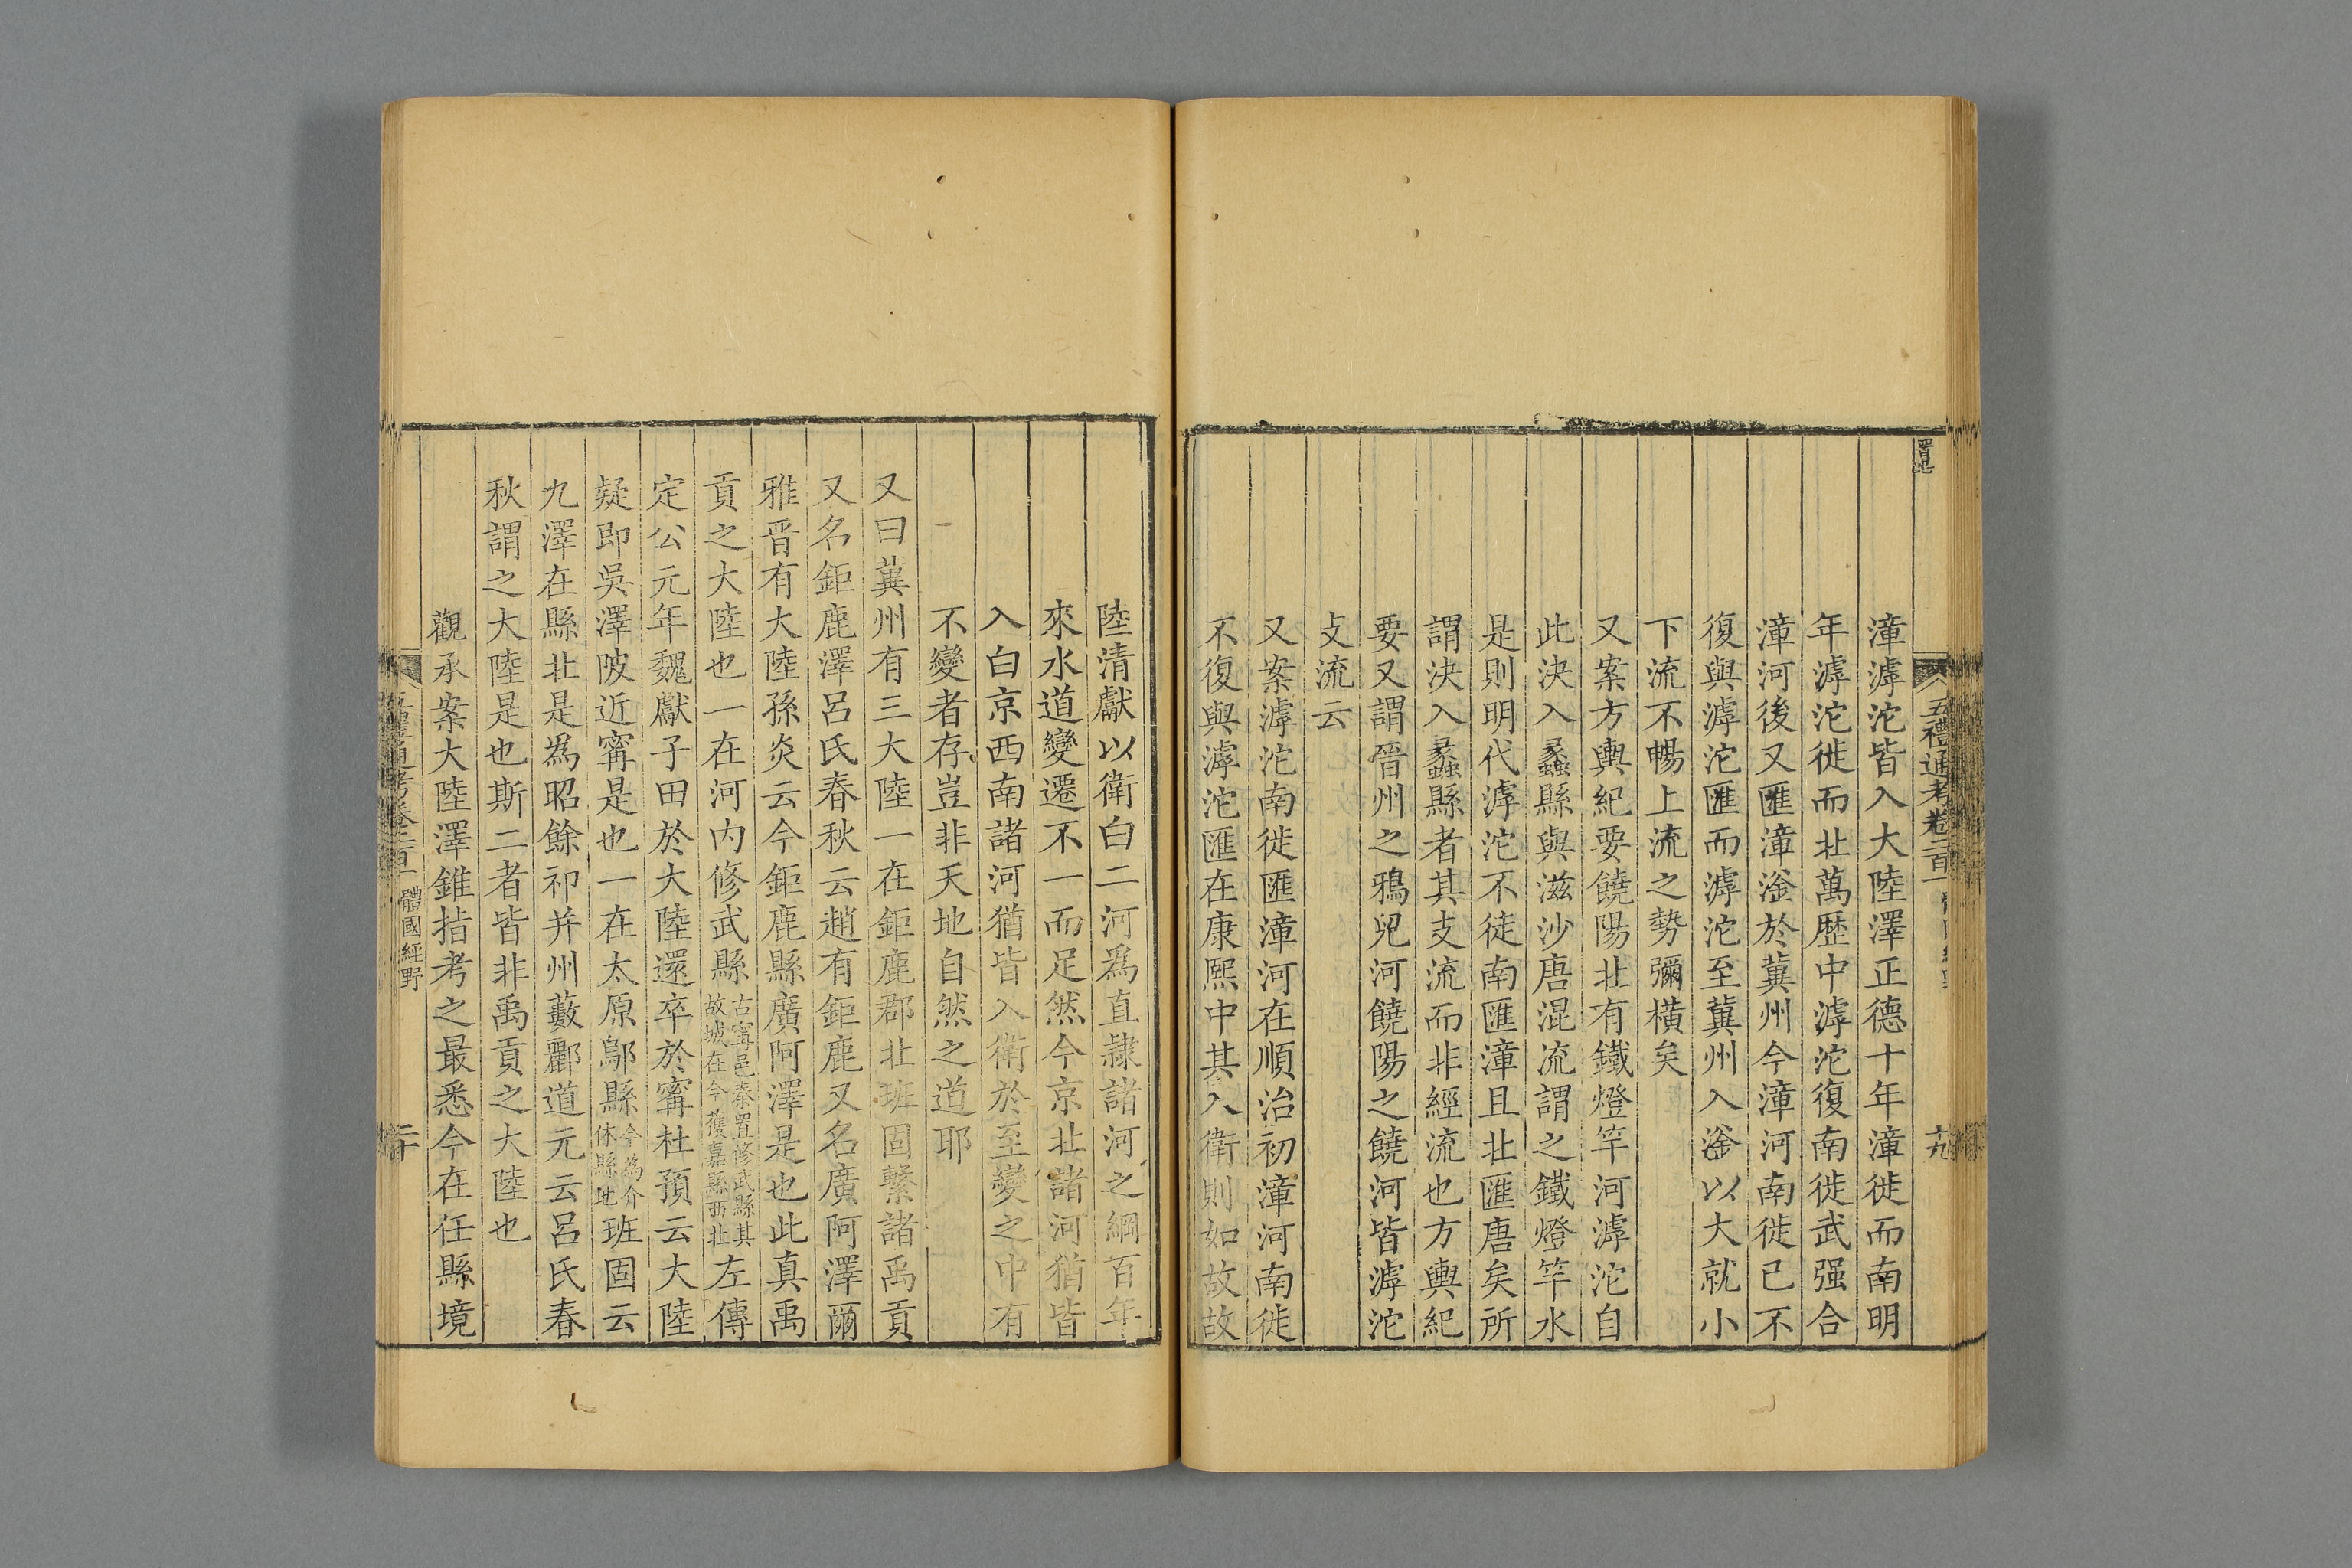 五禮通考卷二百一
十九
漳滹沱皆入大陸澤正德十年漳徙而南明
年滹沱徙而北萬歷中滹沱復南徙武强合
漳河後又匯漳滏於冀州今漳河南徙已不
復與滹沱匯而滹沱至冀州入滏以大就小
下流不暢上流之勢彌橫矣
又案方輿紀要饒陽北有鐵燈竿河滹沱自
此決入蠡縣與滋沙唐混流謂之鐵燈竿水
是則明代滹沱不徒南匯漳且北匯唐矣所
謂決入蠡縣者其支流而非經流也方輿紀
要又謂晉州之鴉兒河饒陽之饒河皆滹沱
支流云
又案滹沱南徙匯漳河在順治初漳河南徙
不復與滹沱匯在康熙中其入衛則如故故
陸清獻以衛白二河爲直隷諸河之綱百年
來水道變遷不一而足然今京北諸河猶皆
入白京西南諸河猶皆入衛於至變之中有
不變者存豈非天地自然之道耶
又曰冀州有三大陸一在鉅鹿郡北班固繫諸禹貢
又名鉅鹿澤呂氏春秋云趙有鉅鹿又名廣阿澤爾
雅晉有大陸孫炎云今鉅鹿縣廣阿澤是也此真禹
貢之大陸也一在河內修武縣古甯邑秦置修武縣其故城在今獲嘉縣西北左傳
定公元年魏獻子田於大陸還卒於甯杜預云大陸
疑即吳澤陂近甯是也一在太原鄔縣今為介休縣地班固云
九澤在縣北是爲昭餘祁并州藪酈道元云呂氏春
秋謂之大陸是也斯二者皆非禹貢之大陸也
觀承案大陸澤錐指考之最悉今在任縣境
五禮通考卷二百一
體國經野
二十